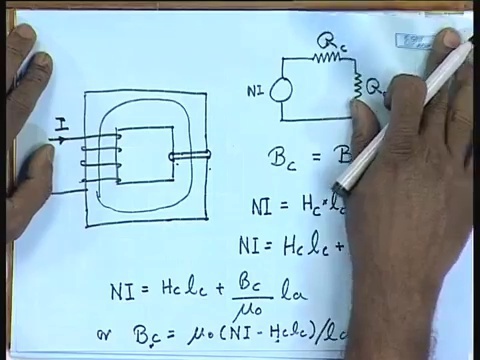 I
R_c
NI
R
B_c = B
NI = H_c * l_c
NI = H_c l_c +
NI = H_c l_c + B_c/μ_0 l_a
or B_c = μ_0 (NI - H_c l_c)/l_a